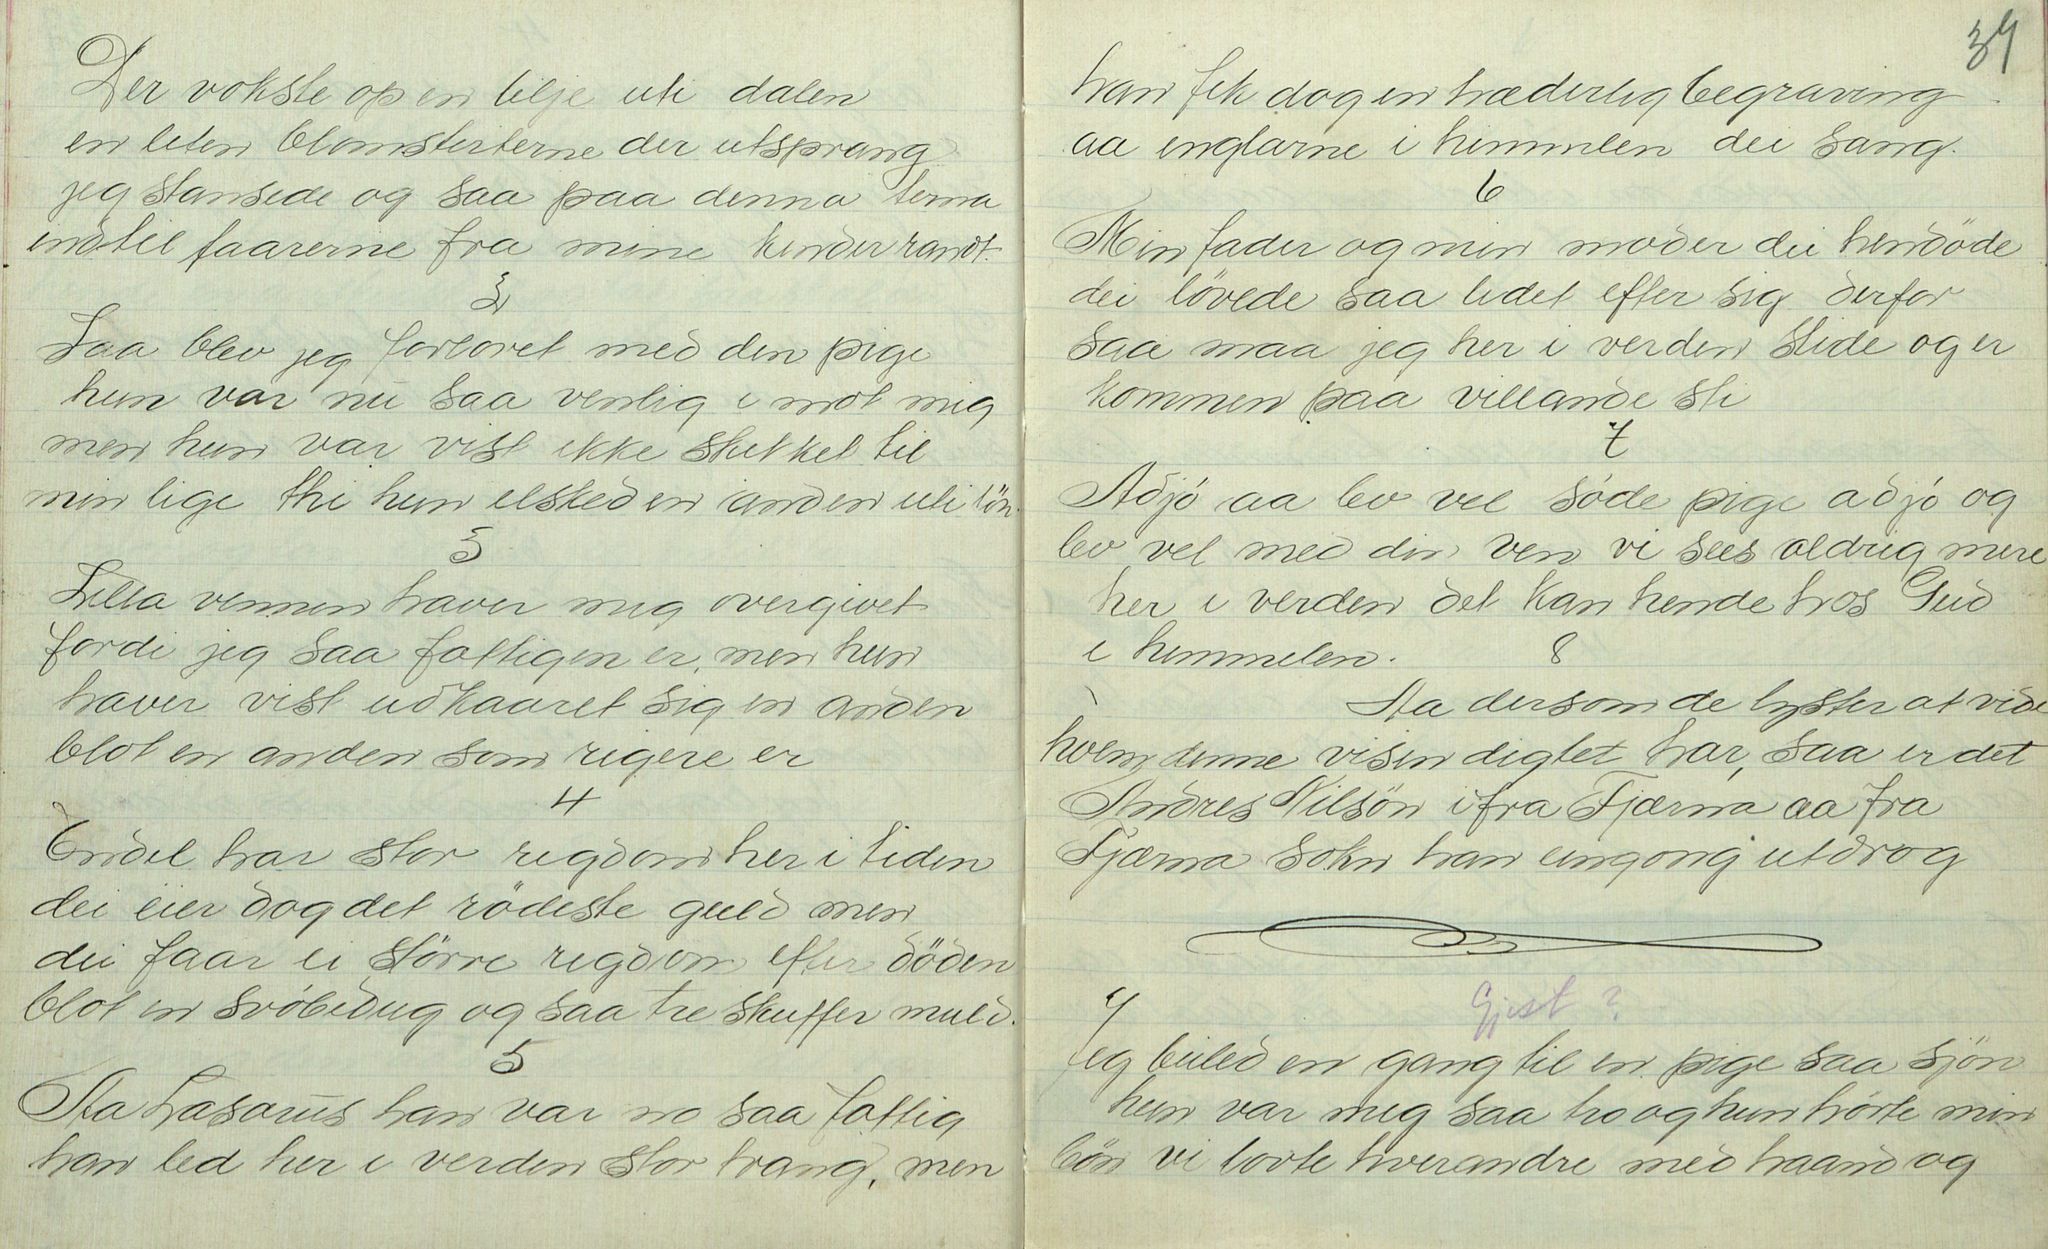 Der vokste op en lilje uti dalen
en liten blomsterterne der utsprang
jeg stansede og saa paa denna terna
indtil taarerne fra mine kinder randt.
3
Saa blev jeg forlovet med den pige
hun var nu saa venlig i mot mig
men hun var vist ikke skikket til
min lige thi hun elsked en anden uti lön.
5
Lilla vennen haver mig overgivet
fordi jeg saa fattigen er, men hun
haver vist udkaaret sig en anden
blot en anden som rigere er
4
Endel har stor rigdom her i tiden
dei eier dog det rödeste guld men
dei faar ei större rigdom efter döden
blot en svöbedug og saa tre skuffer muld.
5
Aa Lasarus han var no saa fattig
han led her i verden stor trang, men
34
han fik dog en hæderlig begraving
aa englarne i himmelen dei sang.
6
Min fader og min moder dei hendöde
dei lövede saa lidet efter sig derfor
saa maa jeg her i verden stride og er
kommen paa villande sti
7
Adjö aa lev vel söde pige adjö og
lev vel med din ven vi sees aldrig mere
her i verden det kan hende hos Gud
i himmelen.
8
Aa dersom de lyster at vide
hvem denne visen digtet har, saa er det
Andres Nilsön ifra Tjærna aa fra
Tjærna sokn han eingong utdrog
Gjest ?
Jeg beiled en gang til en pige saa sjön
hun var mig saa tro og hun hörte min
bön vi lovte hverandre med haand og